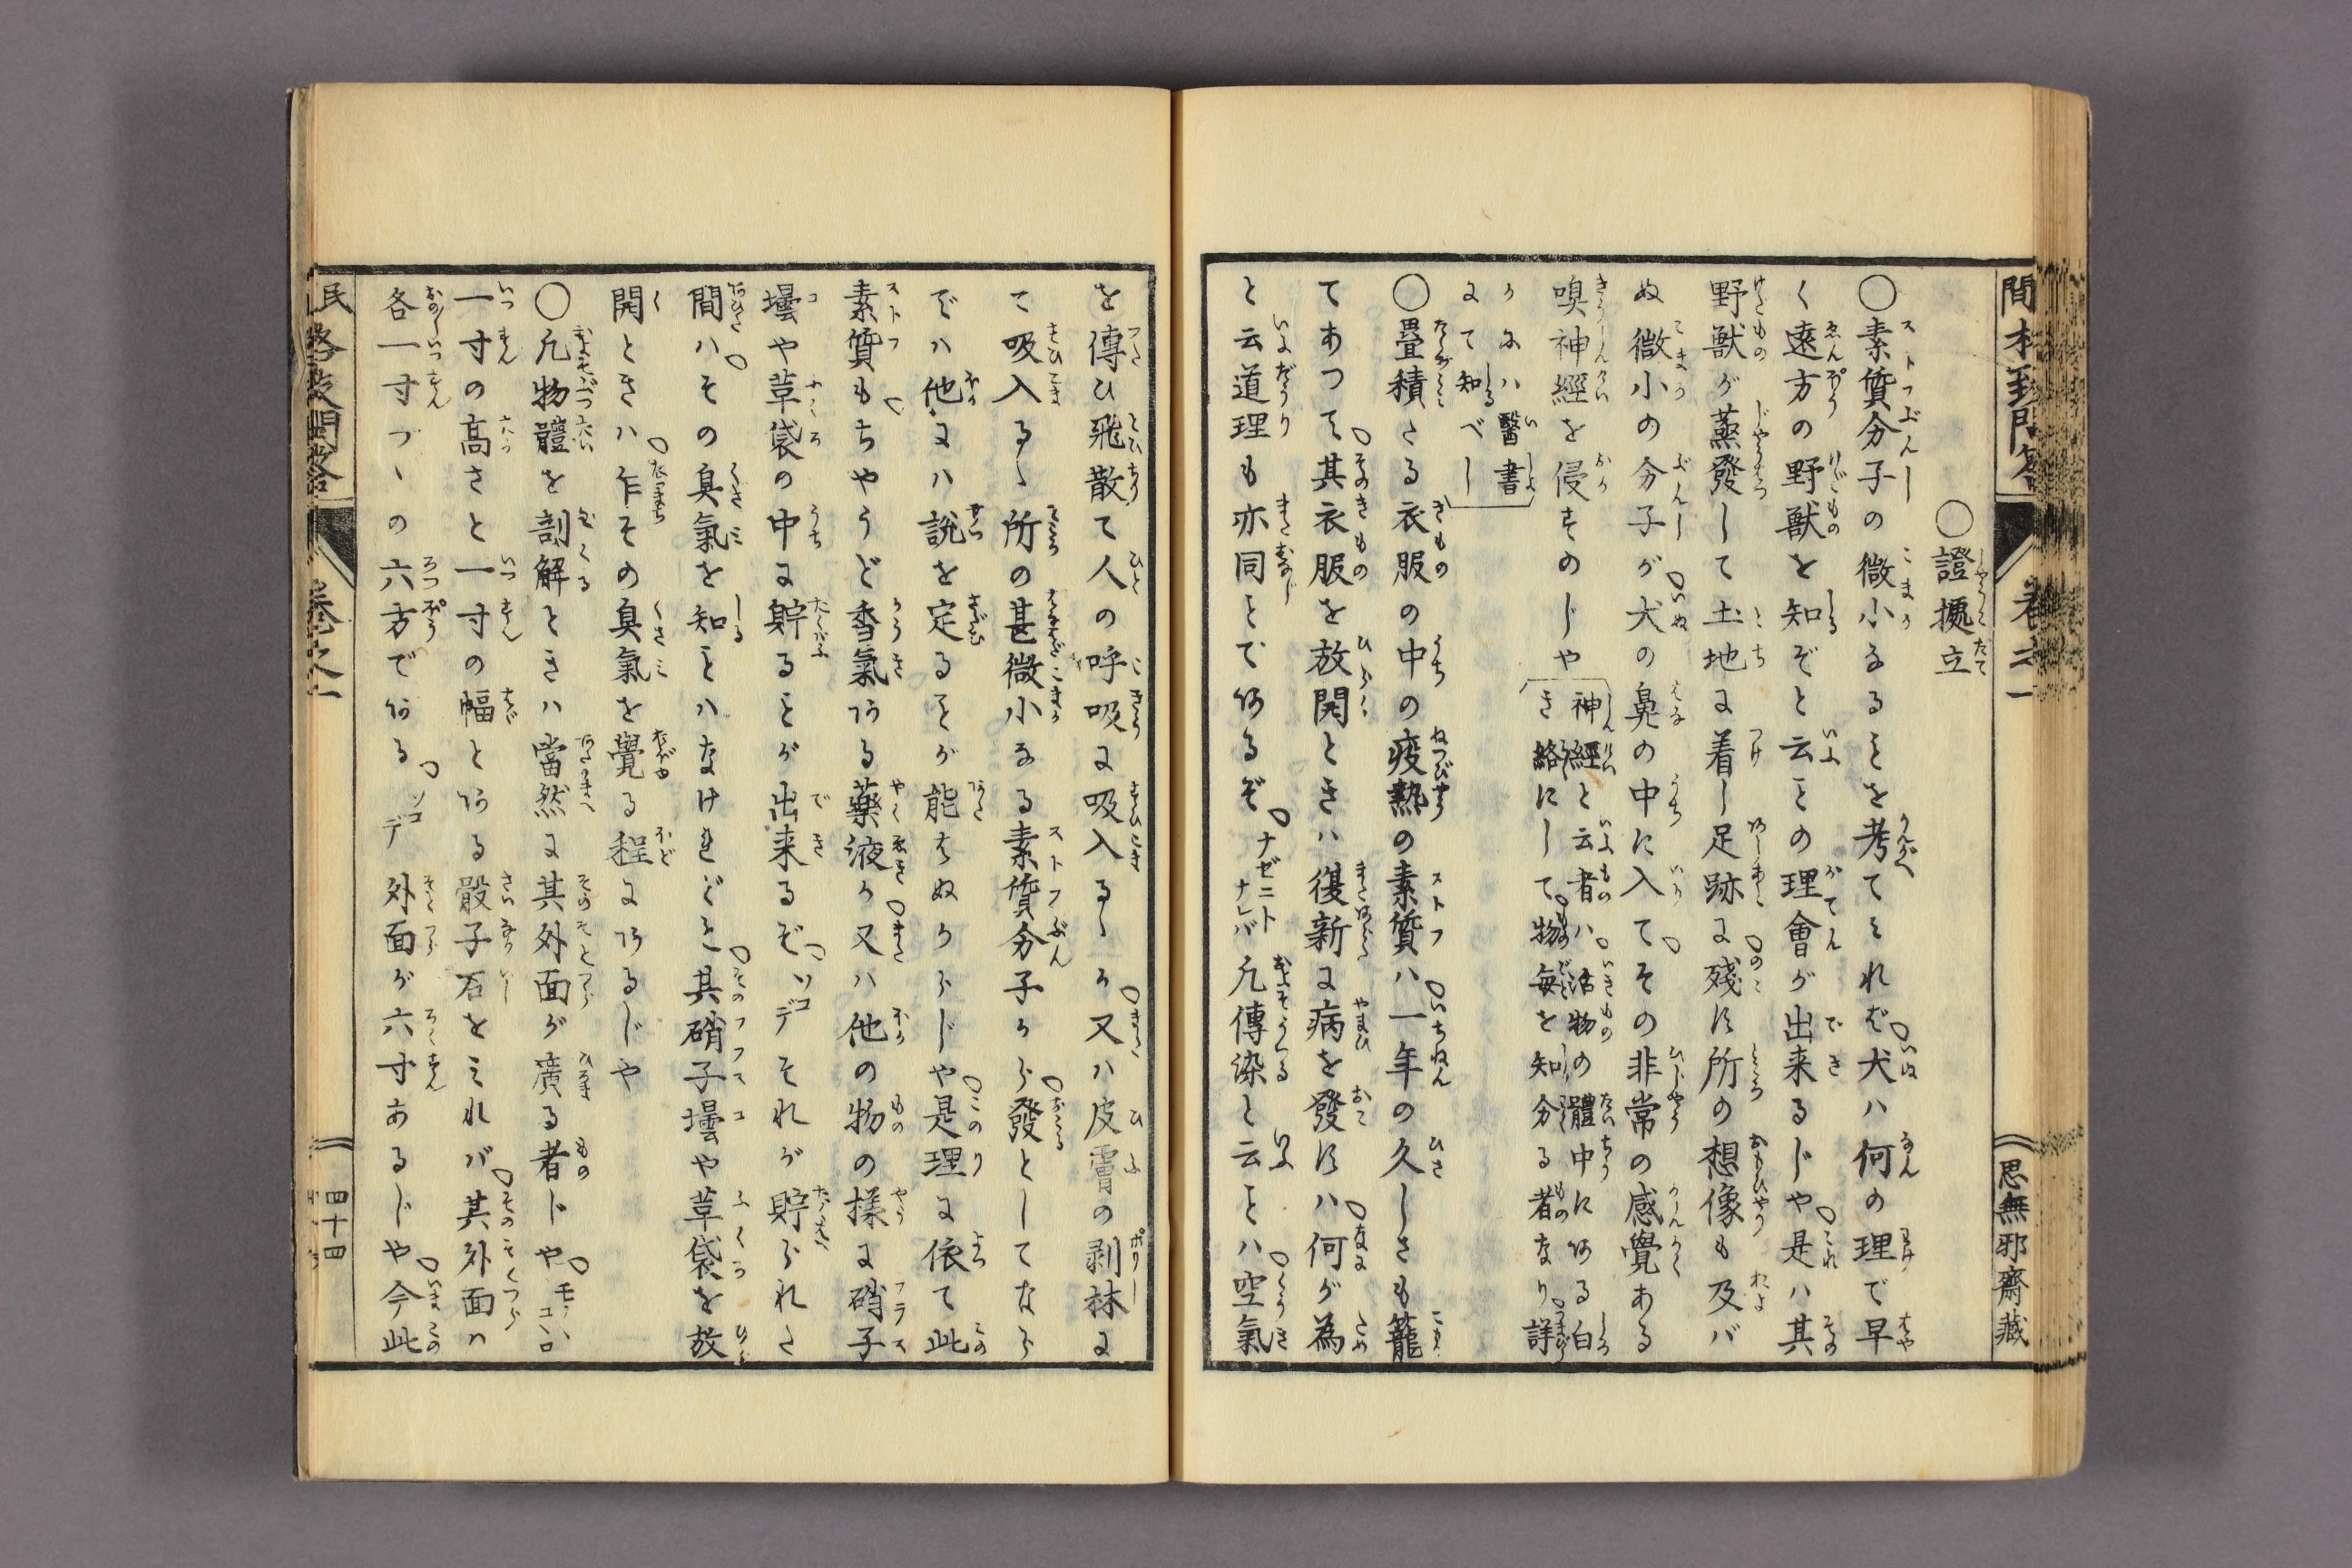 ○證據立
○素質分子の微小なるヿを考てミれば犬ハ何の理で早
く遠方の野獣を知ぞと云ヿの理會が出来るじや是ハ其
野獣が蒸發して土地に着し足跡に殘す所の想像も及バ
ぬ微小の分子が犬の鼻の中に入てその非常の感覺ある
嗅神經を侵すのじや
神經と云者ハ活物の體中にある白
き絡にして物毎を知分る者なり詳
かにハ醫書
にて知べし
○畳積たる衣服の中の疫熱の素質ハ一年の久しさも籠
てあつて其衣服を放開ときハ復新に病を發すハ何が為
と云道理も亦同ヿであるぞナゼニトナレバ凡傳染と云ヿハ空氣
を傳ひ飛散て人の呼吸に吸入るゝか又ハ皮膚の剥抹に
て吸入るゝ所の甚微小なる素質分子から發としてなら
でハ他にハ説を定るヿが能はぬからじや是理に依て此
素質もちやうど香氣ある藥液か又ハ他の物の様に硝子
壜や草袋の中に貯るヿが出来るぞソコデそれが貯られた
間ハその臭氣を知ヿハなけれども其硝子壜や草袋を放
開ときハ乍その臭氣を覺る程にあるじや
○凡物體を剖解ときハ當然に其外面が廣る者じや
一寸の高さと一寸の幅とある骰子石をミれバ其外面ハ
各一寸づゝの六方であるソコデ外面が六寸あるじや今此
思無邪齋藏
四十四